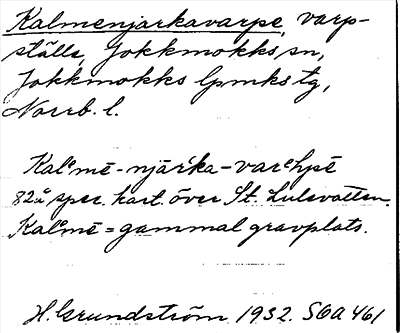 Kalmenjarkavarpe, varp-
ställe, Jokkmokks sn,
Jokkmokks lpmks tg,
Norrb. l.
Kalᵉmē-njar'ka-varᵉhpē
82 å sper. kart. över St. Lulevatten.
Kalᵉmē = gammal gravplats.
H. Grundström 1932. SOA 461